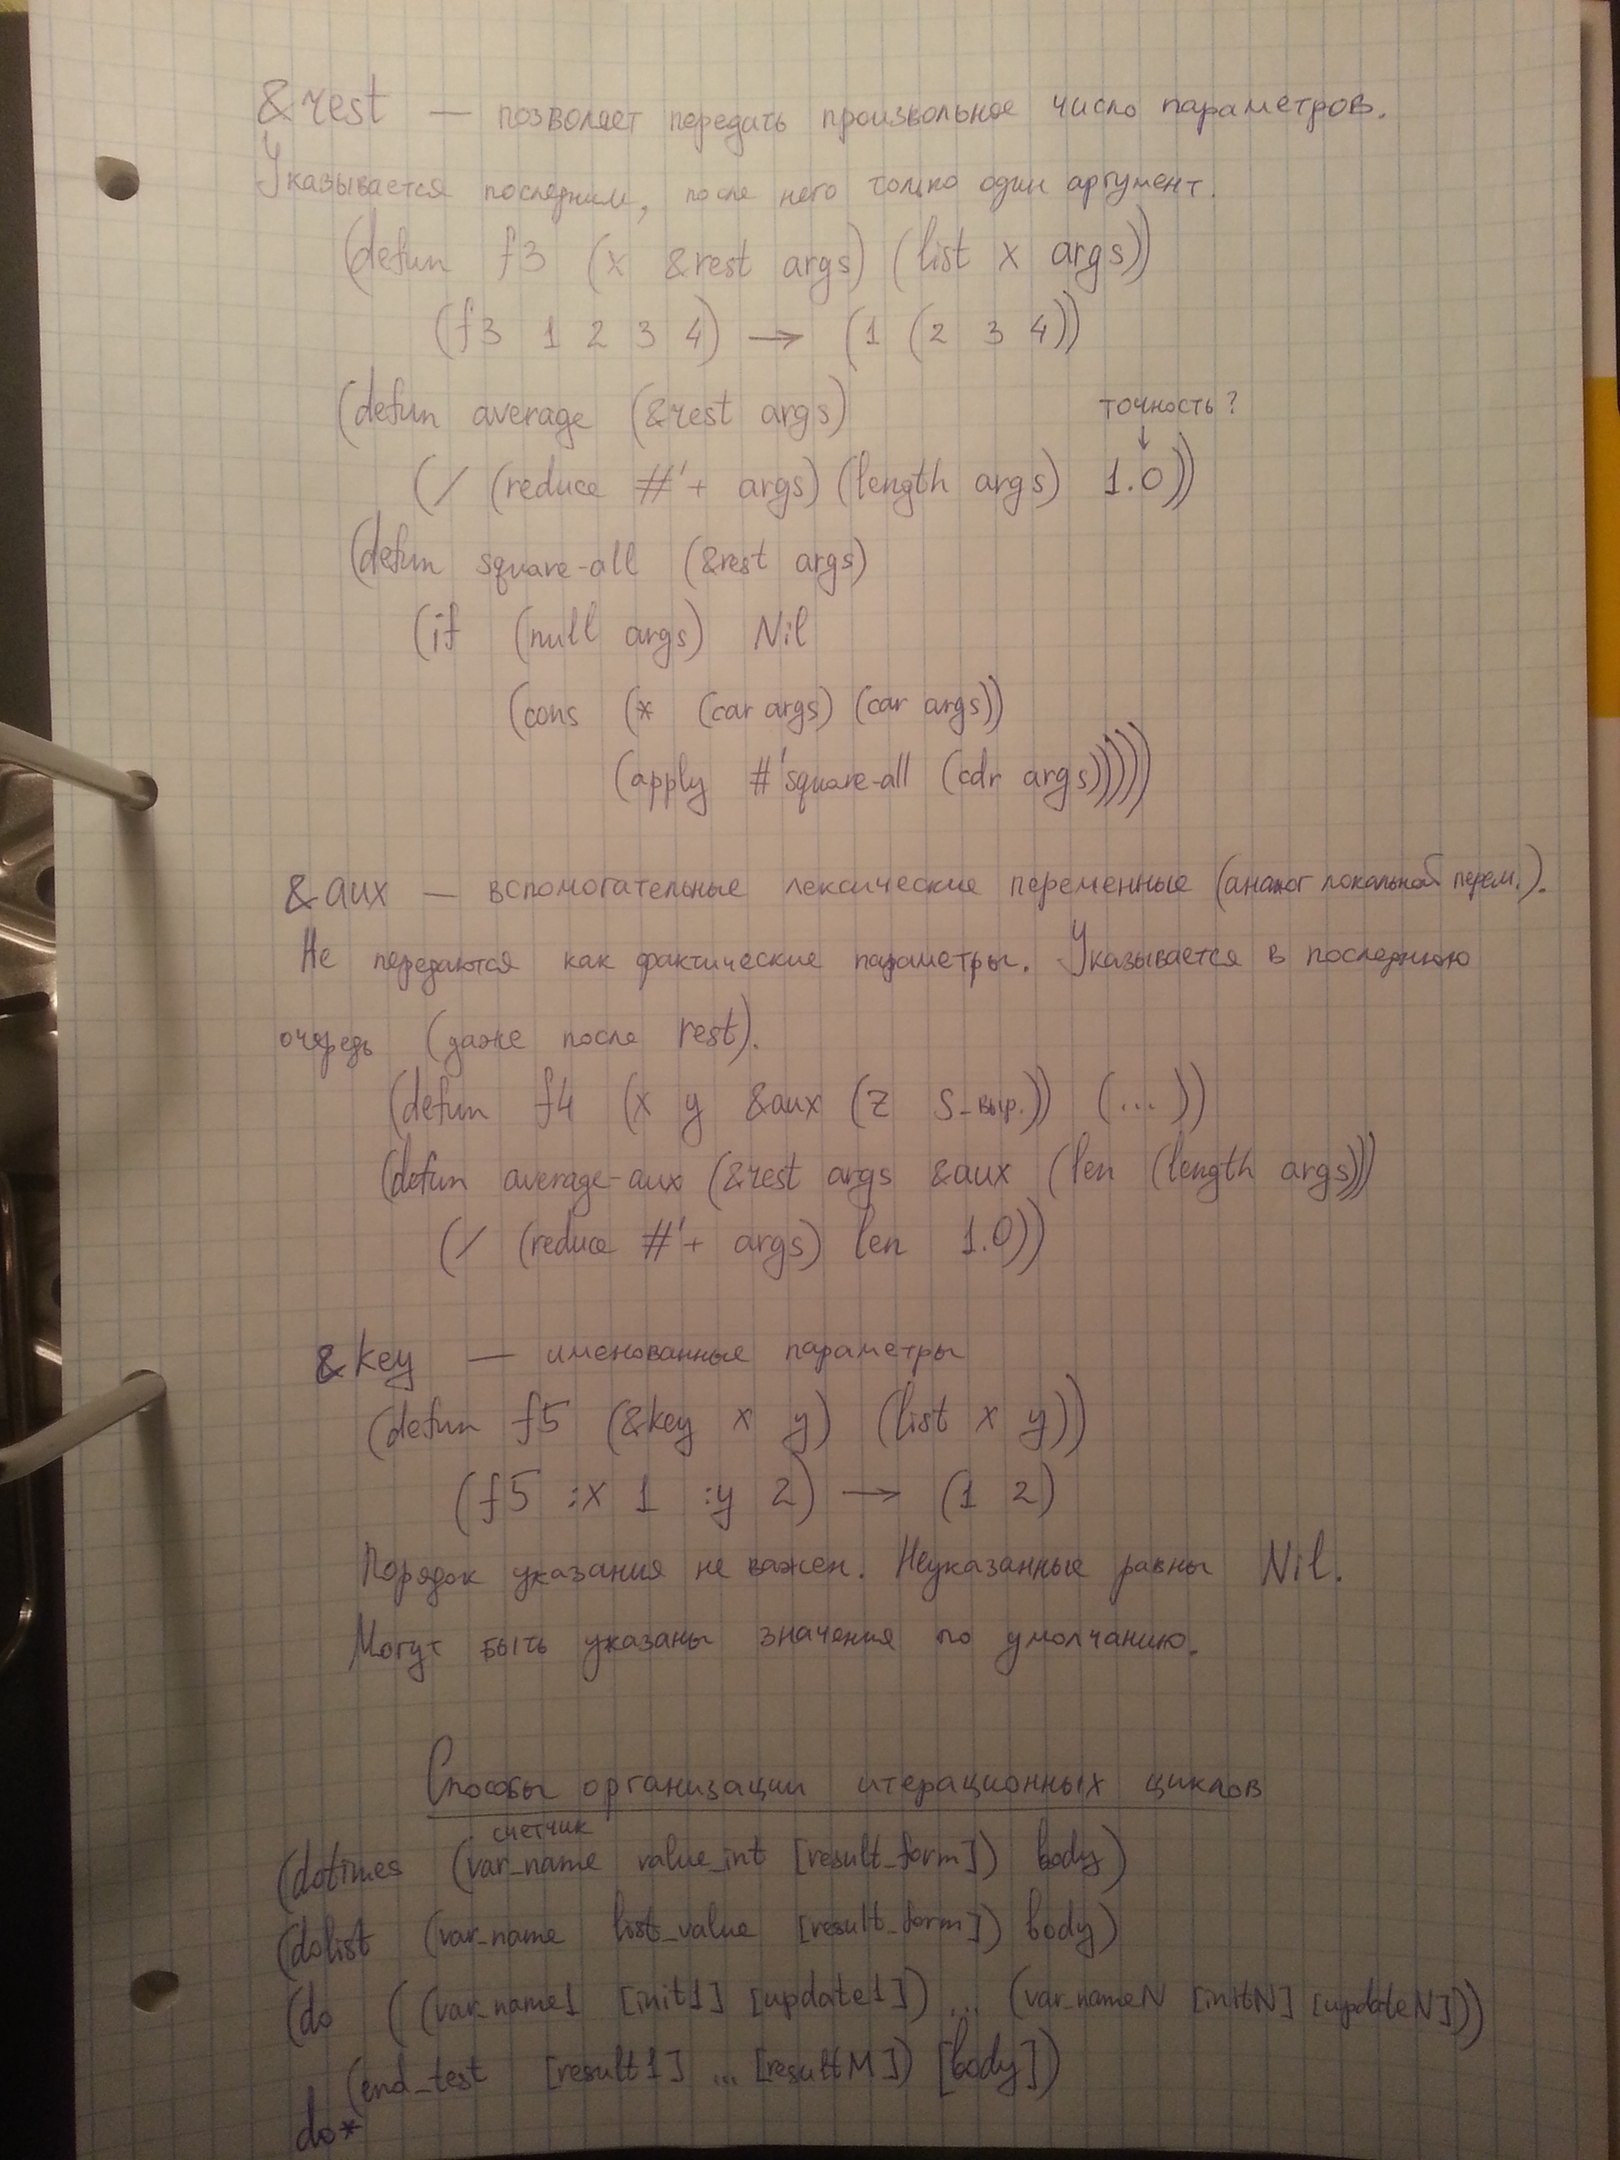 &rest — позволяет передать произвольное число параметров.
Указывается последним, после него только один аргумент.
(defun f3 (x &rest args) (list x args))
(f3 1 2 3 4) → (1 (2 3 4))
(defun average (&rest args)
точность?
↓
(/ (reduce #'+ args) (length args) 1.0))
(defun square-all (&rest args)
(if (null args) Nil
(cons (* (car args) (car args))
(apply #'square-all (cdr args)))))
&aux — вспомогательные лексические переменные (аналог локальной перем.).
Не передаются как фактические параметры. Указывается в последнюю
очередь (даже после rest).
(defun f4 (x y &aux (z S-выр.)) (...))
(defun average-aux (&rest args &aux (len (length args)))
(/ (reduce #'+ args) len 1.0))
&key — именованные параметры
(defun f5 (&key x y) (list x y))
(f5 :x 1 :y 2) → (1 2)
Порядок указания не важен. Неуказанные равны Nil.
Могут быть указаны значения по умолчанию.
Способы организации итерационных циклов
счетчик
(dotimes (var_name value_int [result_form]) body)
(dolist (var_name list_value [result_form]) body)
(do ((var_name1 [init1] [update1]) ... (var_nameN [initN] [updateN]))
(end_test [result1] ... [resultM]) [body])
do*